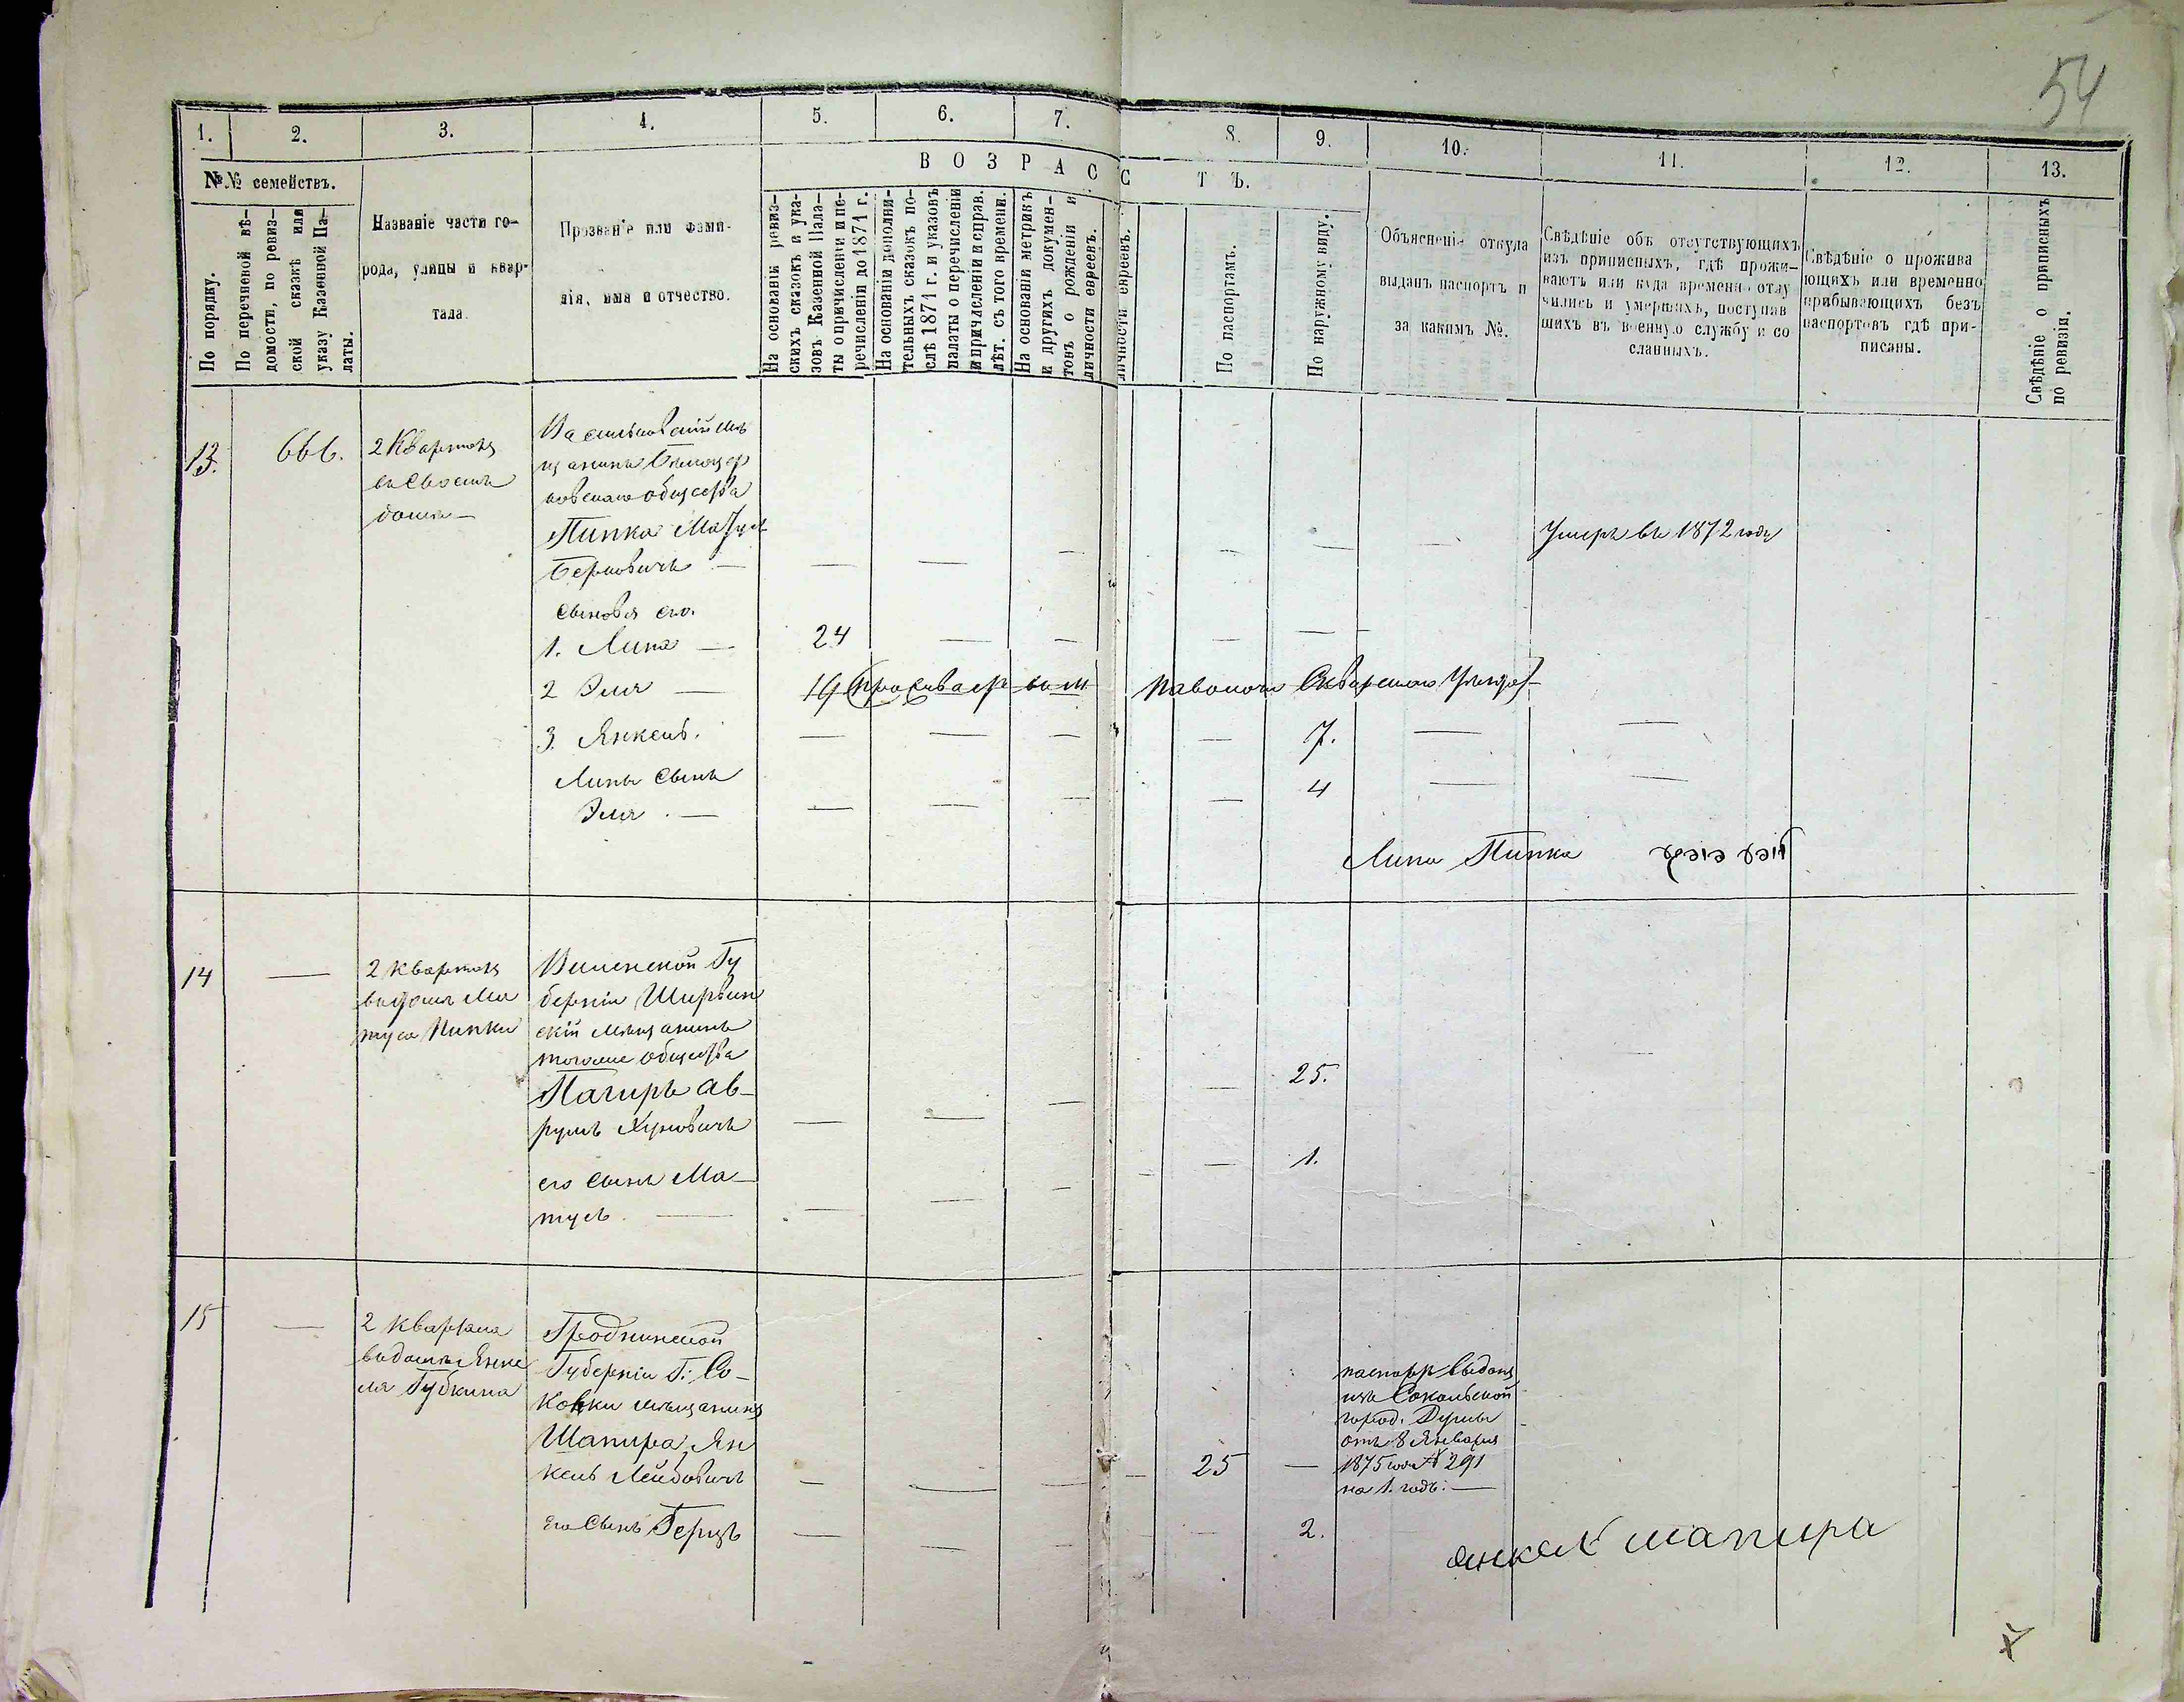 54
1. 2. 3. 4. 5. 6. 7. 8. 9. 10. 11. 12. 13.
№№ семействъ.
По порядку.
По перечневой вѣ-
домости, по ревиз-
ской сказкѣ или
указу Казенной Па-
латы.
Названіе части го-
рода, улицы и квар-
тала
Прозваніе или фами-
лія, имя и отчество.
ВОЗРАСТЪ.
На основаніи ревиз-
скихъ сказокъ и ука-
зовъ Казенной Пала-
ты о причисленіи и пе-
речисленіи до 1871 г.
На основаніи дополни-
тельныхъ сказокъ по-
слѣ 1871 г. и указовъ
палаты о перечисленіи
и причисленіи и справ.
лѣт. съ того времени.
На основаніи метрикъ
и другихъ докумен-
товъ о рожденіи и
личности евреевъ.
личности евреевъ.
По паспортамъ.
По наружному виду.
Объясненіе откуда
выданъ паспортъ и
за какимъ №.
Свѣдѣніе объ отсутствующихъ
изъ приписныхъ, гдѣ прожи-
ваютъ или куда временно отлу
чились и умершихъ, поступив
шихъ въ военную службу и со
сланныхъ.
Свѣдѣніе о прожива
ющихъ или временно
прибывающихъ безъ
паспортовъ гдѣ при-
писаны.
Свѣдѣніе о приписныхъ
по ревизіи.
13.
666.
2 Квартала
въ своемъ
домѣ —
Васильковскій мѣ
щанинъ Бѣлоцер
ковскаго общества
Пипка Матусъ
Берковичъ —
Умеръ въ 1872 году
сыновья его.
1. Липа — 24
2 Эля — 19 (проживаетъ въ м Паволочи Сквирскаго Уѣзда)
3. Янкель. 7.
Липы сынъ
Эля. — 4
Липа Пипка
14
—
2 Квартала
въ домѣ Ма
туса Пипки
Виленской Гу
берніи Ширвин
скій мѣщанинъ
тогоже общества
Пагиръ Ав-
румъ
25.
его сынъ Ма-
тусъ. — 1.
15
—
2 Квартала
въ домѣ Янке
ля Губкина
Гродненской
Губерніи Г: Со-
колки мѣщанинъ
Шапира, Ян
кель Лейбовичъ
25
паспортъ выданъ
изъ Сокольской
город. Думы
отъ 8 Января
1875 года № 291
на 1. годъ. —
Его сынъ Герцъ 2.
янкел шапира